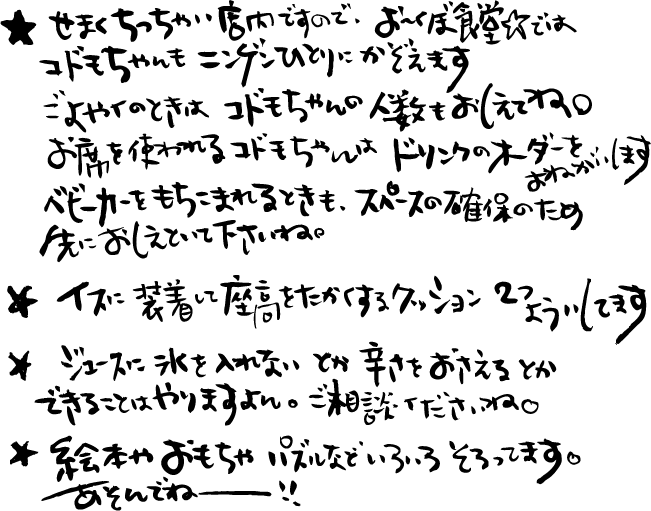 ★ せまくちっちゃい店内ですので、お〜くぼ食堂☆では
コドモちゃんも ニンゲンひとりに かぞえます
ごよやくのときは コドモちゃんの 人数も おしえてね。
お席を使われるコドモちゃんは ドリンクのオーダーを
おねがいします
ベビーカーをもちこまれるときも、スペースの確保のため
先に おしえといて下さいね。
★ イスに 装着して座高をたかくするクッション 2つ
ようい してます
★ ジュースに 氷を入れない とか 辛さをおさえるとか
できることはやりますよん。ご相談くださいね。
★ 絵本や おもちゃ パズルなど いろいろ そろってます。
あそんでねー!!